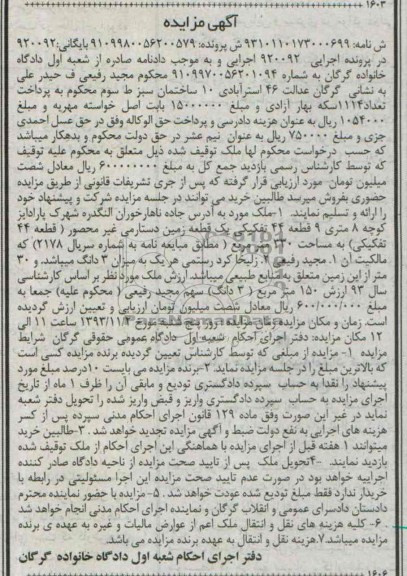 ۱۶۰۳
آگهی مزایده
ش نامه: ۹۳۱۰۱۱۰۱۷۳۰۰۰۶۹۹ ش پرونده: ۹۱۰۹۹۸۰۰۵۶۲۰۰۵۷۹ بایگانی:۹۲۰۰۹۲
در پرونده اجرایی ۹۲۰۰۹۲ اجرایی و به موجب دادنامه صادره از شعبه اول دادگاه
خانواده گرگان به شماره ۹۱۰۹۹۷۰۰۵۶۲۰۱۰۹۴ محکوم مجید رفیعی ف حیدر علی
به نشانی گرگان عدالت ۴۶ استرآبادی ۱۰ ساختمان سبز ط سوم محکوم به پرداخت
تعداد۱۱۱۴سکه بهار آزادی و مبلغ ۱۵۰۰۰۰۰۰ بابت اصل خواسته مهریه و مبلغ
۱۰۵۴۰۰۰ ریال به عنوان هزینه دادرسی و پرداخت حق الوکاله وفق در حق عسل احمدی
جزی و مبلغ ۷۵۰۰۰۰ ریال به عنوان نیم عشر در حق دولت محکوم و بدهکار میباشد
که حسب درخواست محکوم لها ملک توقیف شده ذیل متعلق به محکوم علیه توقیف
که توسط کارشناس رسمی بازدید جمع کل به مبلغ ۶۰۰۰۰۰۰۰۰ ریال معادل شصت
میلیون تومان مورد ارزیابی قرار گرفته که پس از جری تشریفات قانونی از طریق مزایده
حضوری بفروش میرسد طالبین خرید می توانند در جلسه مزایده شرکت و پیشنهاد خود
را ارائه و تسلیم نمایند. ۱-ملک مورد به آدرس جاده ناهارخوران النگدره شهرک پارادایز
کوچه ۸ متری ۹ قطعه ۴۴ تفکیکی یک قطعه زمین دستارمی غیر محصور ( قطعه ۴۴
تفکیکی) به مساحت ۳۳۰ متر مربع ( مطابق مبایعه نامه به شماره سریال ۲۱۷۸) که
مالکیت آن ۱. مجید رفیعی ۲. زلیخا کرد رستمی هر یک به میزان ۳ دانگ میباشد. و ۳۰
متر از این زمین متعلق به منابع طبیعی میباشد. ارزش ملک مورد نظر بر اساس کارشناسی
سال ۹۳ ارزش ۱۵۰ متر مربع ( ۳ دانگ) سهم مجید رفیعی ( محکوم علیه) جمعا به
مبلغ ۶۰۰/۰۰۰/۰۰۰ ریال معادل شصت میلیون تومان ارزیابی و تعیین ارزش گردیده
است. زمان و مکان مزایده: زمان مزایده: مورخ ۱۳۹۳/۱۱/۴ ساعت ۱۱ الی
۱۲ مکان مزایده: دفتر اجرای احکام شعبه اول دادگاه عمومی حقوقی گرگان شرایط
مزایده ۱- مزایده از مبلغی که توسط کارشناس تعیین گردیده برنده مزایده کسی است
که بالاترین مبلغ را در جلسه مزایده نماید. ۲-برنده مزایده می بایست ۱۰درصد مبلغ مورد
پیشنهاد را نقدا به حساب سپرده دادگستری تودیع و مابقی آن را ظرف ۱ ماه از تاریخ
اجرای مزایده به حساب سپرده دادگستری واریز و قبض واریز شده را تحویل دفتر شعبه
نماید در غیر این صورت وفق ماده ۱۲۹ قانون اجرای احکام مدنی سپرده پس از کسر
هزینه های اجرایی به نفع دولت ضبط و آگهی مزایده تجدید خواهد شد. ۳-طالبین خرید
میتوانند ۱ هفته قبل از اجرای مزایده با هماهنگی این اجرای احکام از ملک توقیف شده
بازدید نمایند. ۴-تحویل ملک پس از تایید صحت مزایده از ناحیه دادگاه صادر کننده
اجراییه خواهد بود در صورت عدم تایید صحت مزایده این اجرا مسئولیتی در رابطه با
خریدار ندارد فقط مبلغ تودیع شده عودت خواهد شد. ۵- مزایده با حضور نماینده محترم
دادستان دادسرای عمومی و انقلاب گرگان و نماینده اجرای احکام مدنی انجام خواهد شد
۶- کلیه هزینه های نقل و انتقال ملک اعم از عوارض مالیات و غیره به عهده ی برنده
مزایده میباشد.۷.هزینه نقل و انتقال به عهده برنده مزایده می باشد.
دفتر اجرای احکام شعبه اول دادگاه خانواده گرگان
۱۶۰۶